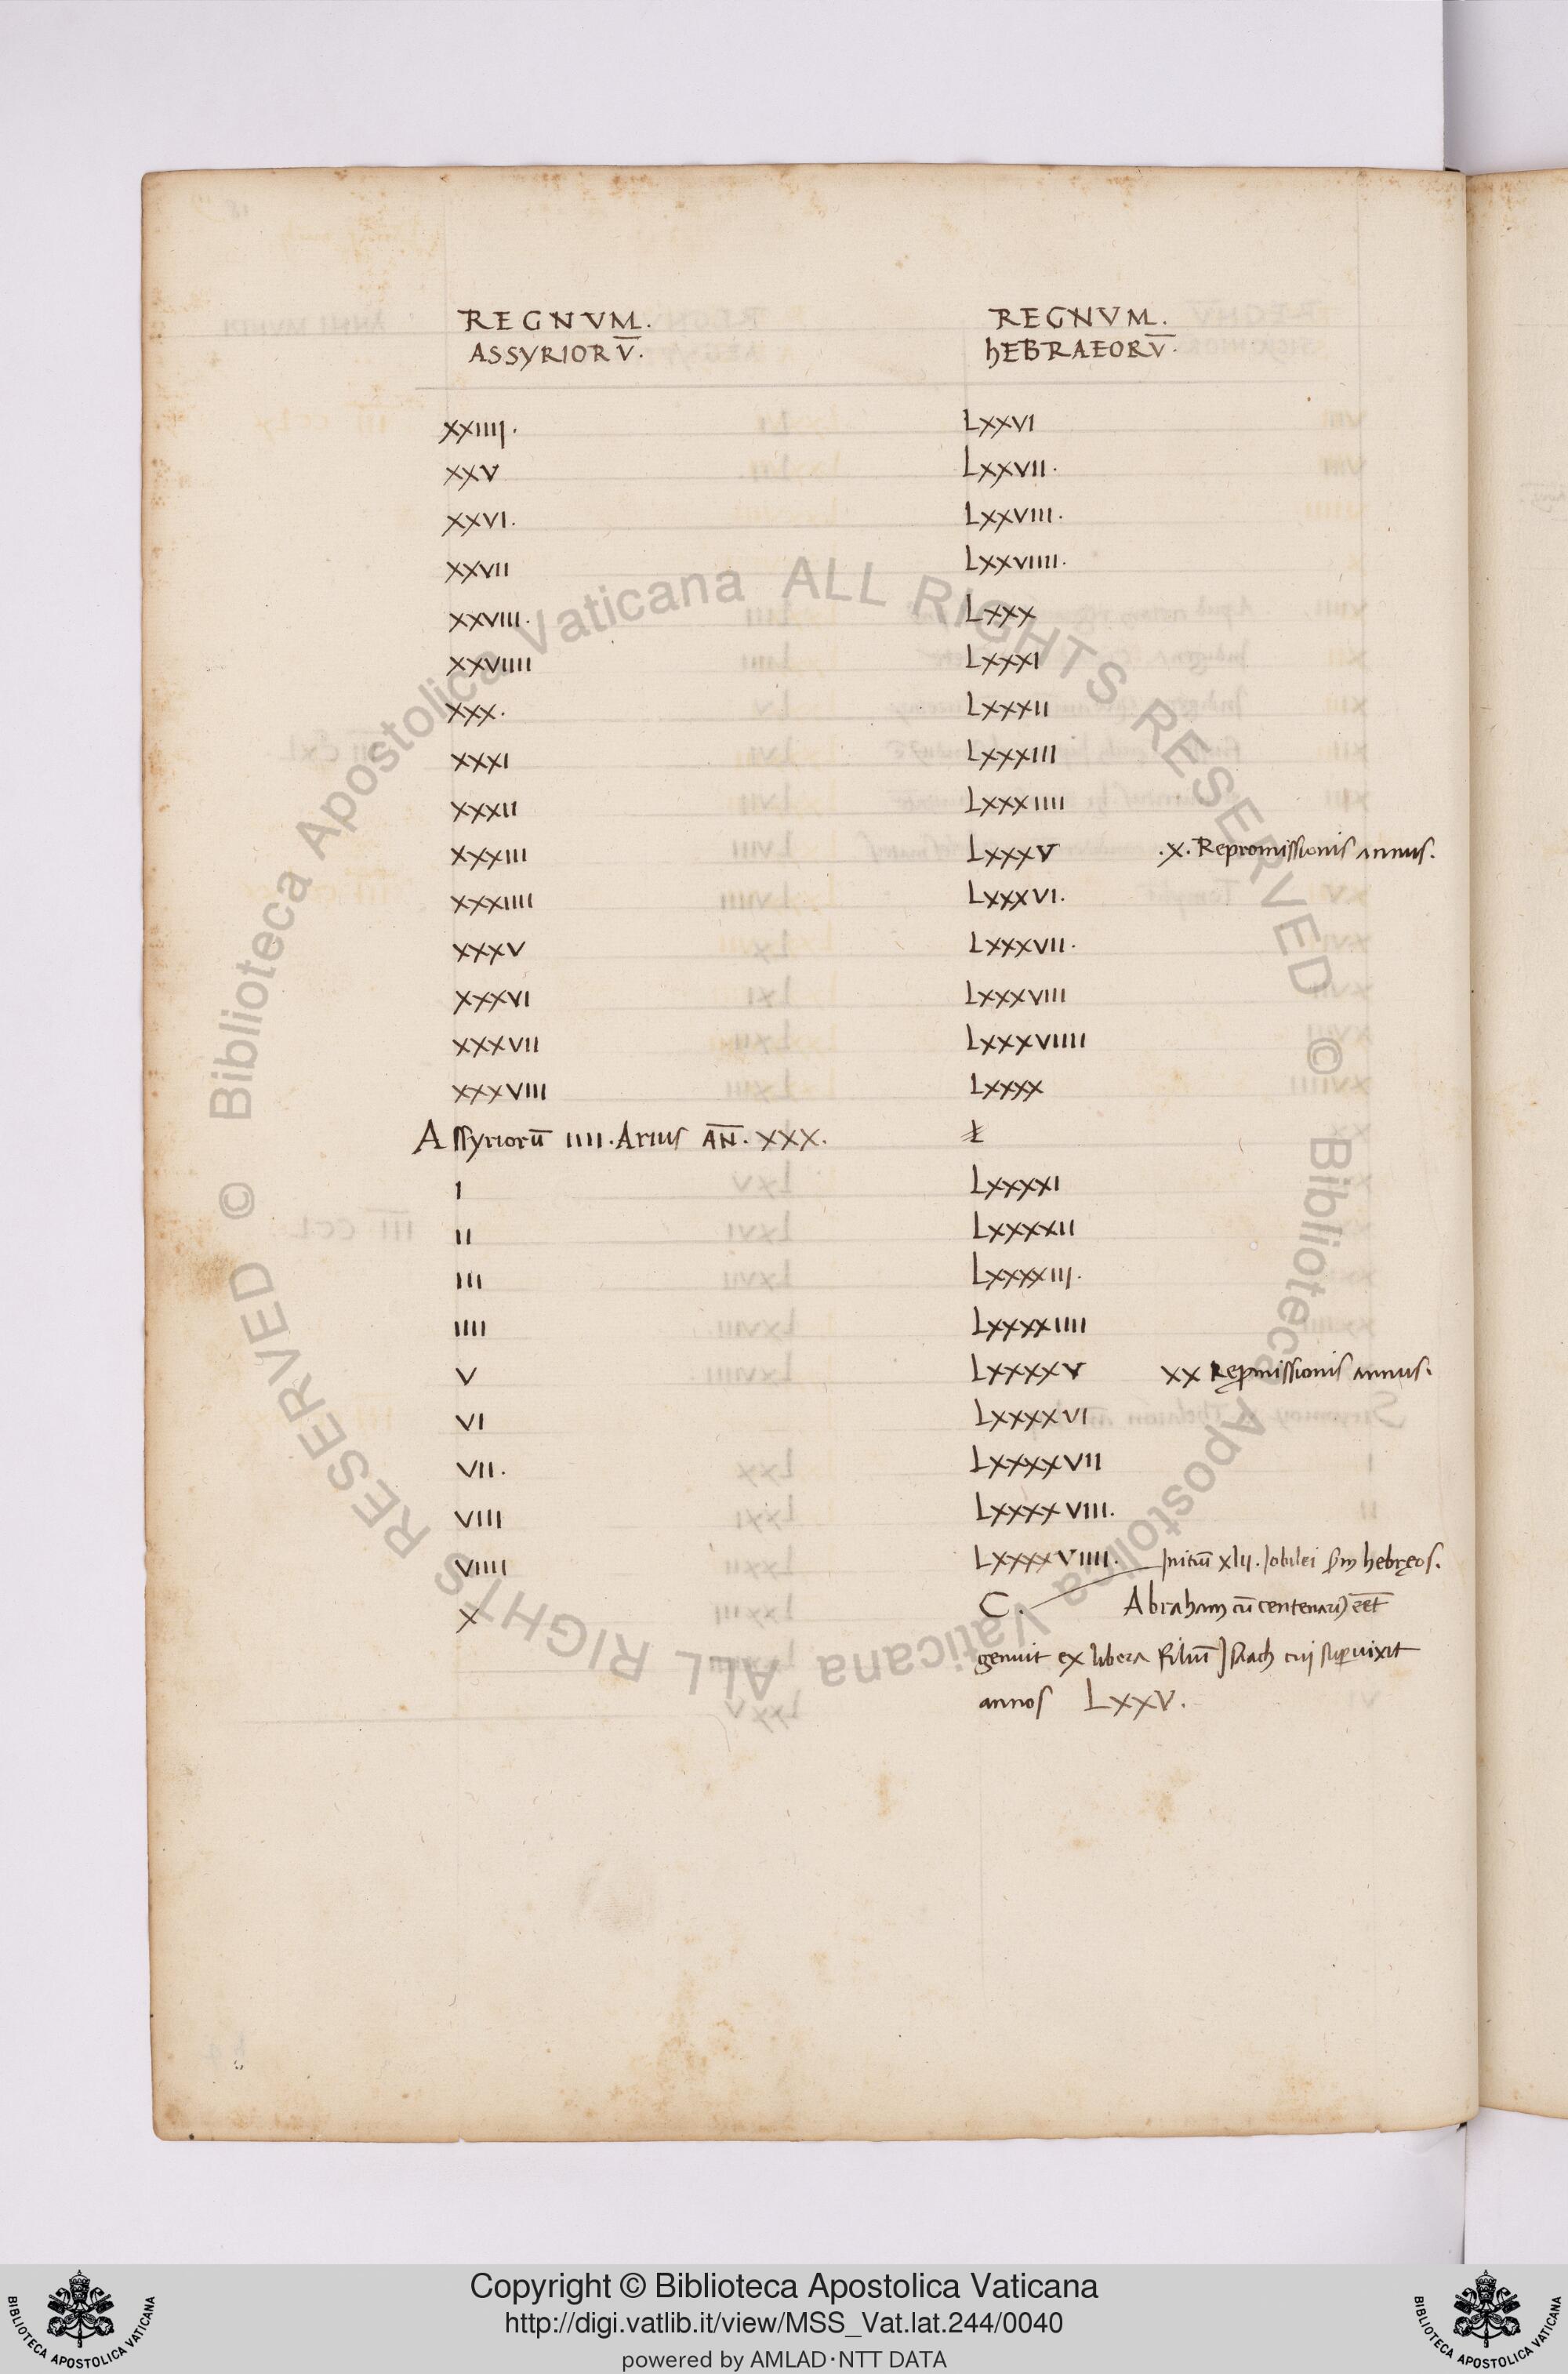 REGNVM. REGNVM.
ASSYRIORV̄. hEBRAEORV̄.
XXIIII. LXXVI
XXV LXXVII.
XXVI. LXXVIII.
XXVII LXXVIIII.
XXVIII. LXXX
XXVIIII LXXXI
XXX. LXXXII
XXXI LXXXIII
XXXII LXXXIIII
XXXIII LXXXV .X. Repromissionis annus.
XXXIIII LXXXVI.
XXXV LXXXVII.
XXXVI LXXXVIII
XXXVII LXXXVIIII
XXXVIII LXXXX
Assyriorū IIII. Arius AN̄. XXX.
I LXXXXI
II LXXXXII
III LXXXXIII.
IIII LXXXXIIII
V LXXXXV XX Rep̱missionis annus.
VI LXXXXVI
VII. LXXXXVII
VIII LXXXXVIII.
VIIII LXXXXVIIII. Initiū xlii. Iobilei hebręos.
X C. Abraham cū centenari eēt
genuit ex libera filiū Isaach cui suꝑuixit
annos LXXV.
Biblioteca Apostolica Vaticana ALL RIGHTS RESERVED ©
Biblioteca Apostolica Vaticana ALL RIGHTS RESERVED ©
Copyright © Biblioteca Apostolica Vaticana
http://digi.vatlib.it/view/MSS_Vat.lat.244/0040
powered by AMLAD·NTT DATA
BIBLIOTECA APOSTOLICA VATICANA
BIBLIOTECA APOSTOLICA VATICANA